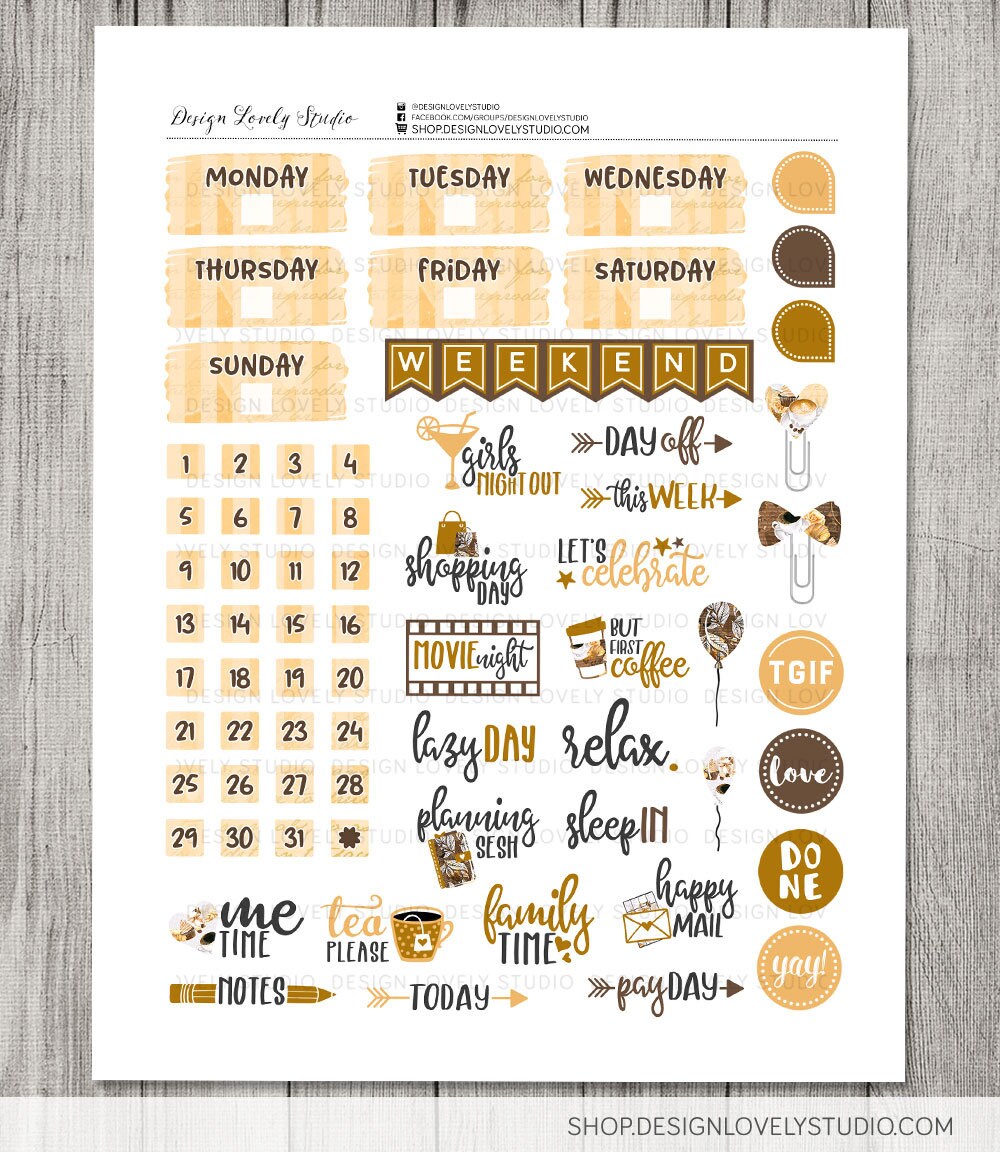 Design Lovely Studio
@DESIGNLOVELYSTUDIO
FACEBOOK.COM/GROUPS/DESIGNLOVELYSTUDIO
SHOP.DESIGNLOVELYSTUDIO.COM
MONDAY
TUESDAY
WEDNESDAY
THURSDAY
FRIDAY
SATURDAY
SUNDAY
WEEKEND
1 2 3 4
5 6 7 8
9 10 11 12
13 14 15 16
17 18 19 20
21 22 23 24
25 26 27 28
29 30 31
girls
NIGHT OUT
DAY off
this WEEK
shopping
DAY
LET'S
celebrate
MOVIE night
BUT
FIRST
coffee
lazy DAY
relax.
planning
SESH
sleep IN
me
TIME
tea
PLEASE
family
TIME
happy
MAIL
NOTES
TODAY
pay DAY
TGIF
love
DO
NE
yay!
DESIGN LOVELY STUDIO DESIGN LOVELY STUDIO DESIGN LOV
SHOP.DESIGNLOVELYSTUDIO.COM